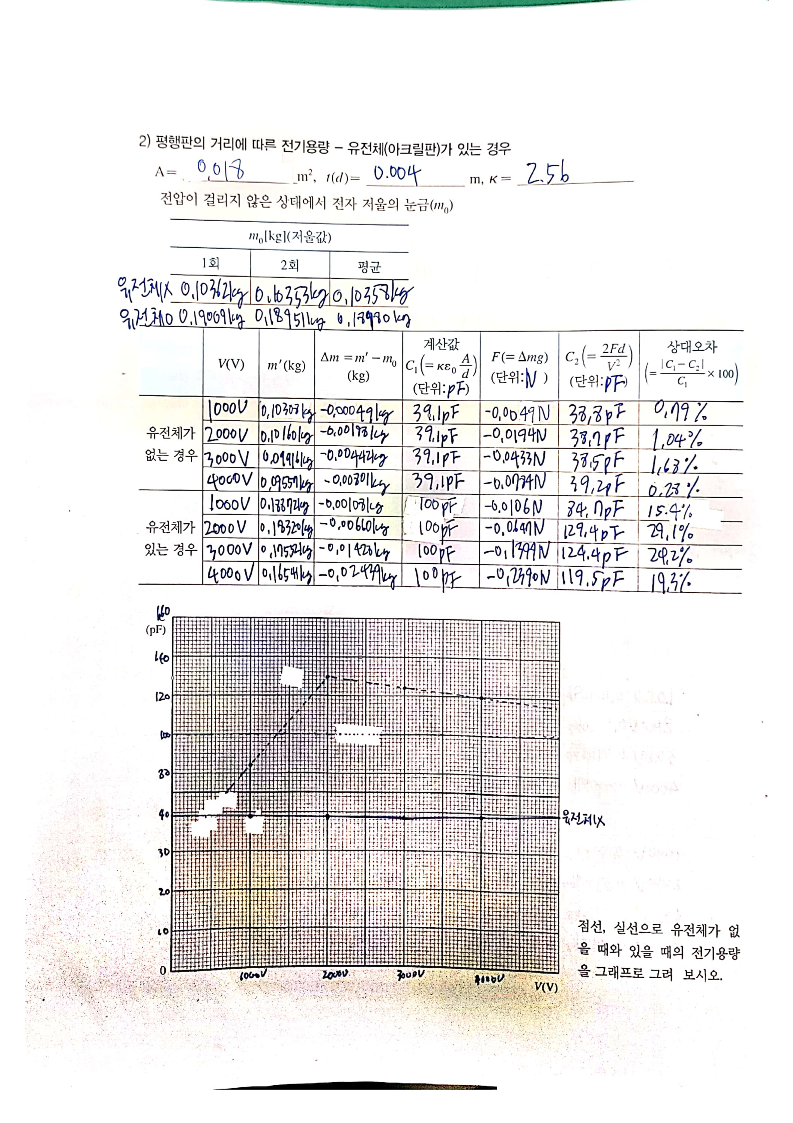 2) 평행판의 거리에 따른 전기용량 – 유전체(아크릴판)가 있는 경우
A= 0.018 m², t(d)= 0.004 m, κ = 2.56
전압이 걸리지 않은 상태에서 전자 저울의 눈금(m₀)
m₀[kg](저울값)
1회 2회 평균
유전체X 0.10362kg 0.10353kg 0.10358kg
유전체O 0.19009kg 0.18951kg 0.18980kg
V(V) m′(kg) Δm = m′ − m₀ (kg) 계산값 C₁(= κε₀ A/d) (단위: pF) F(= Δmg) (단위: N) C₂(= 2Fd/V²) (단위: pF) 상대오차 (= |C₁ − C₂|/C₁ × 100)
유전체가 없는 경우
1000V 0.10308kg -0.00049kg 39.1pF -0.0049N 38.8pF 0.79%
2000V 0.10160kg -0.00198kg 39.1pF -0.0194N 38.7pF 1.04%
3000V 0.09916kg -0.00442kg 39.1pF -0.0433N 38.5pF 1.63%
4000V 0.09557kg -0.00801kg 39.1pF -0.0784N 39.2pF 0.28%
유전체가 있는 경우
1000V 0.18872kg -0.00108kg 100pF -0.0106N 84.7pF 15.4%
2000V 0.18320kg -0.00660kg 100pF -0.0647N 129.4pF 29.1%
3000V 0.17552kg -0.01428kg 100pF -0.1399N 124.4pF 24.2%
4000V 0.16541kg -0.02439kg 100pF -0.2390N 119.5pF 19.3%
160
(pF)
140
120
100
80
40 유전체X
30
20
10
0
1000V 2000V 3000V 4000V
V(V)
점선, 실선으로 유전체가 없
을 때와 있을 때의 전기용량
을 그래프로 그려 보시오.